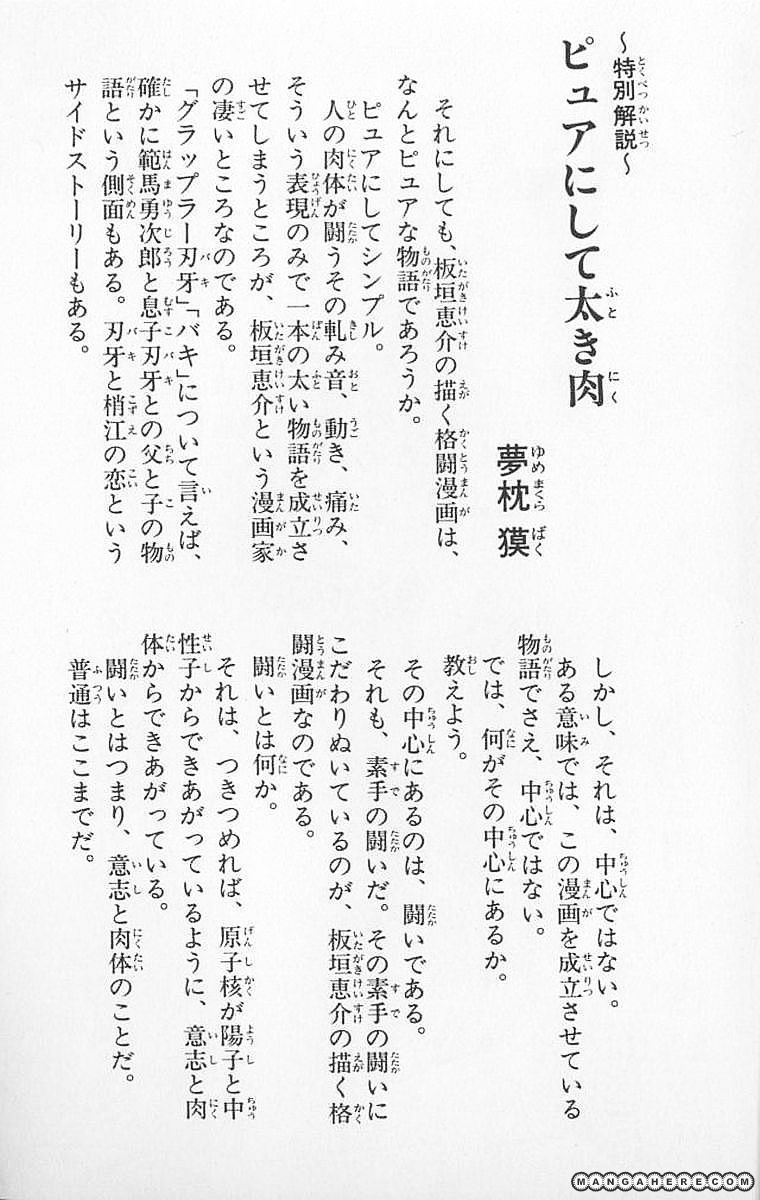 〜特別解説〜
ピュアにして太き肉
夢枕 獏
それにしても、板垣恵介の描く格闘漫画は、
なんとピュアな物語であろうか。
ピュアにしてシンプル。
人の肉体が闘うその軋み音、動き、痛み、
そういう表現のみで一本の太い物語を成立さ
せてしまうところが、板垣恵介という漫画家
の凄いところなのである。
「グラップラー刃牙」「バキ」について言えば、
確かに範馬勇次郎と息子刃牙との父と子の物
語という側面もある。刃牙と梢江の恋という
サイドストーリーもある。
しかし、それは、中心ではない。
ある意味では、この漫画を成立させている
物語でさえ、中心ではない。
では、何がその中心にあるか。
教えよう。
その中心にあるのは、闘いである。
それも、素手の闘いだ。その素手の闘いに
こだわりぬいているのが、板垣恵介の描く格
闘漫画なのである。
闘いとは何か。
それは、つきつめれば、原子核が陽子と中
性子からできあがっているように、意志と肉
体からできあがっている。
闘いとはつまり、意志と肉体のことだ。
普通はここまでだ。
MANGAHERE.COM